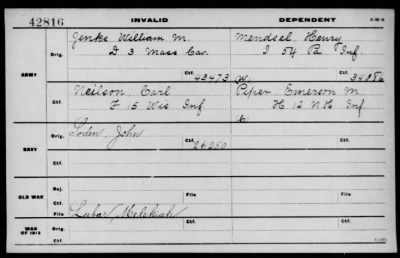 42816 INVALID DEPENDENT
Jenks William M. Mendsel, Henry
Orig. D 3 Mass Cav. I 54 Pa Inf
ARMY Ctf. 43473 (W) Ctf. 34086
Neilson, Carl Piper Emerson M
Ctf. F 15 Wis Inf H 12 N.H Inf
Soden, John
Orig.
NAVY Ctf. 26250 Ctf.
Ctf.
OLD WAR Rej. File File
Ctf.
Labar, Melchiah
WAR OF 1812 Orig.
Ctf. Ctf.